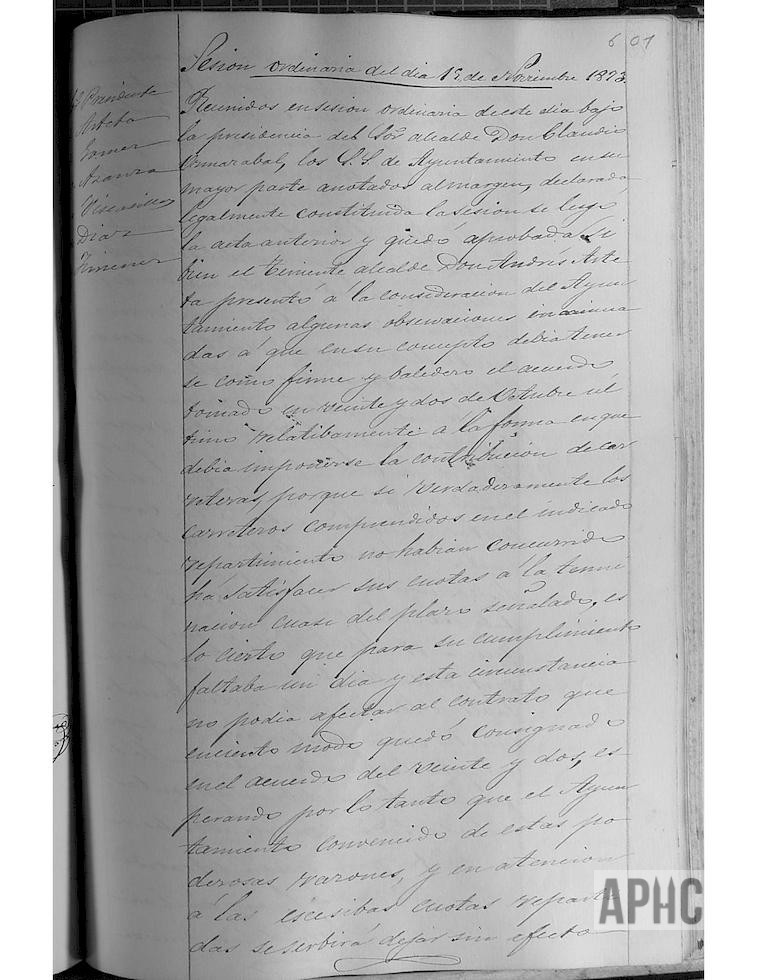 601
Sesion ordinaria del dia 15 de Noviembre 1873.
Sr Presidente
Arteta
Gomez
Azanza
Viscasillas
Diaz
Ximenez
Reunidos en sesion ordinaria de este dia bajo
la presidencia del Sor alcalde Don Claudio
Armarabal, los S.S. de Ayuntamiento en su
mayor parte anotados al margen, declarada
legalmente constituida la sesion se leyó
la acta anterior y quedó aprobada. Si
bien el teniente alcalde Don Andres Arte
ta presentó á la consideracion del Ayun
tamiento algunas observaciones encamina
das á que en su concepto debia tener
se como firme y baledero el acuerdo
tomado en veinte y dos de Octubre úl
timo relatibamente á la forma en que
debia imponerse la contribucion de car
reteras, porque si verdaderamente los
carreteros comprendidos en el indicado
repartimiento no habian concurrido
há satisfacer sus cuotas á la termi
nacion cuasi del plazo señalado, es
lo cierto que para su cumplimiento
faltaba un dia y esta circunstancia
no podia afectar al contrato que
en cierto modo quedó consignado
en el acuerdo del veinte y dos, es
perando por lo tanto que el Ayun
tamiento convencido de estas po
derosas razones, y en atencion
á las escesibas cuotas reparti
das se serbirá dejar sin efecto
APHC